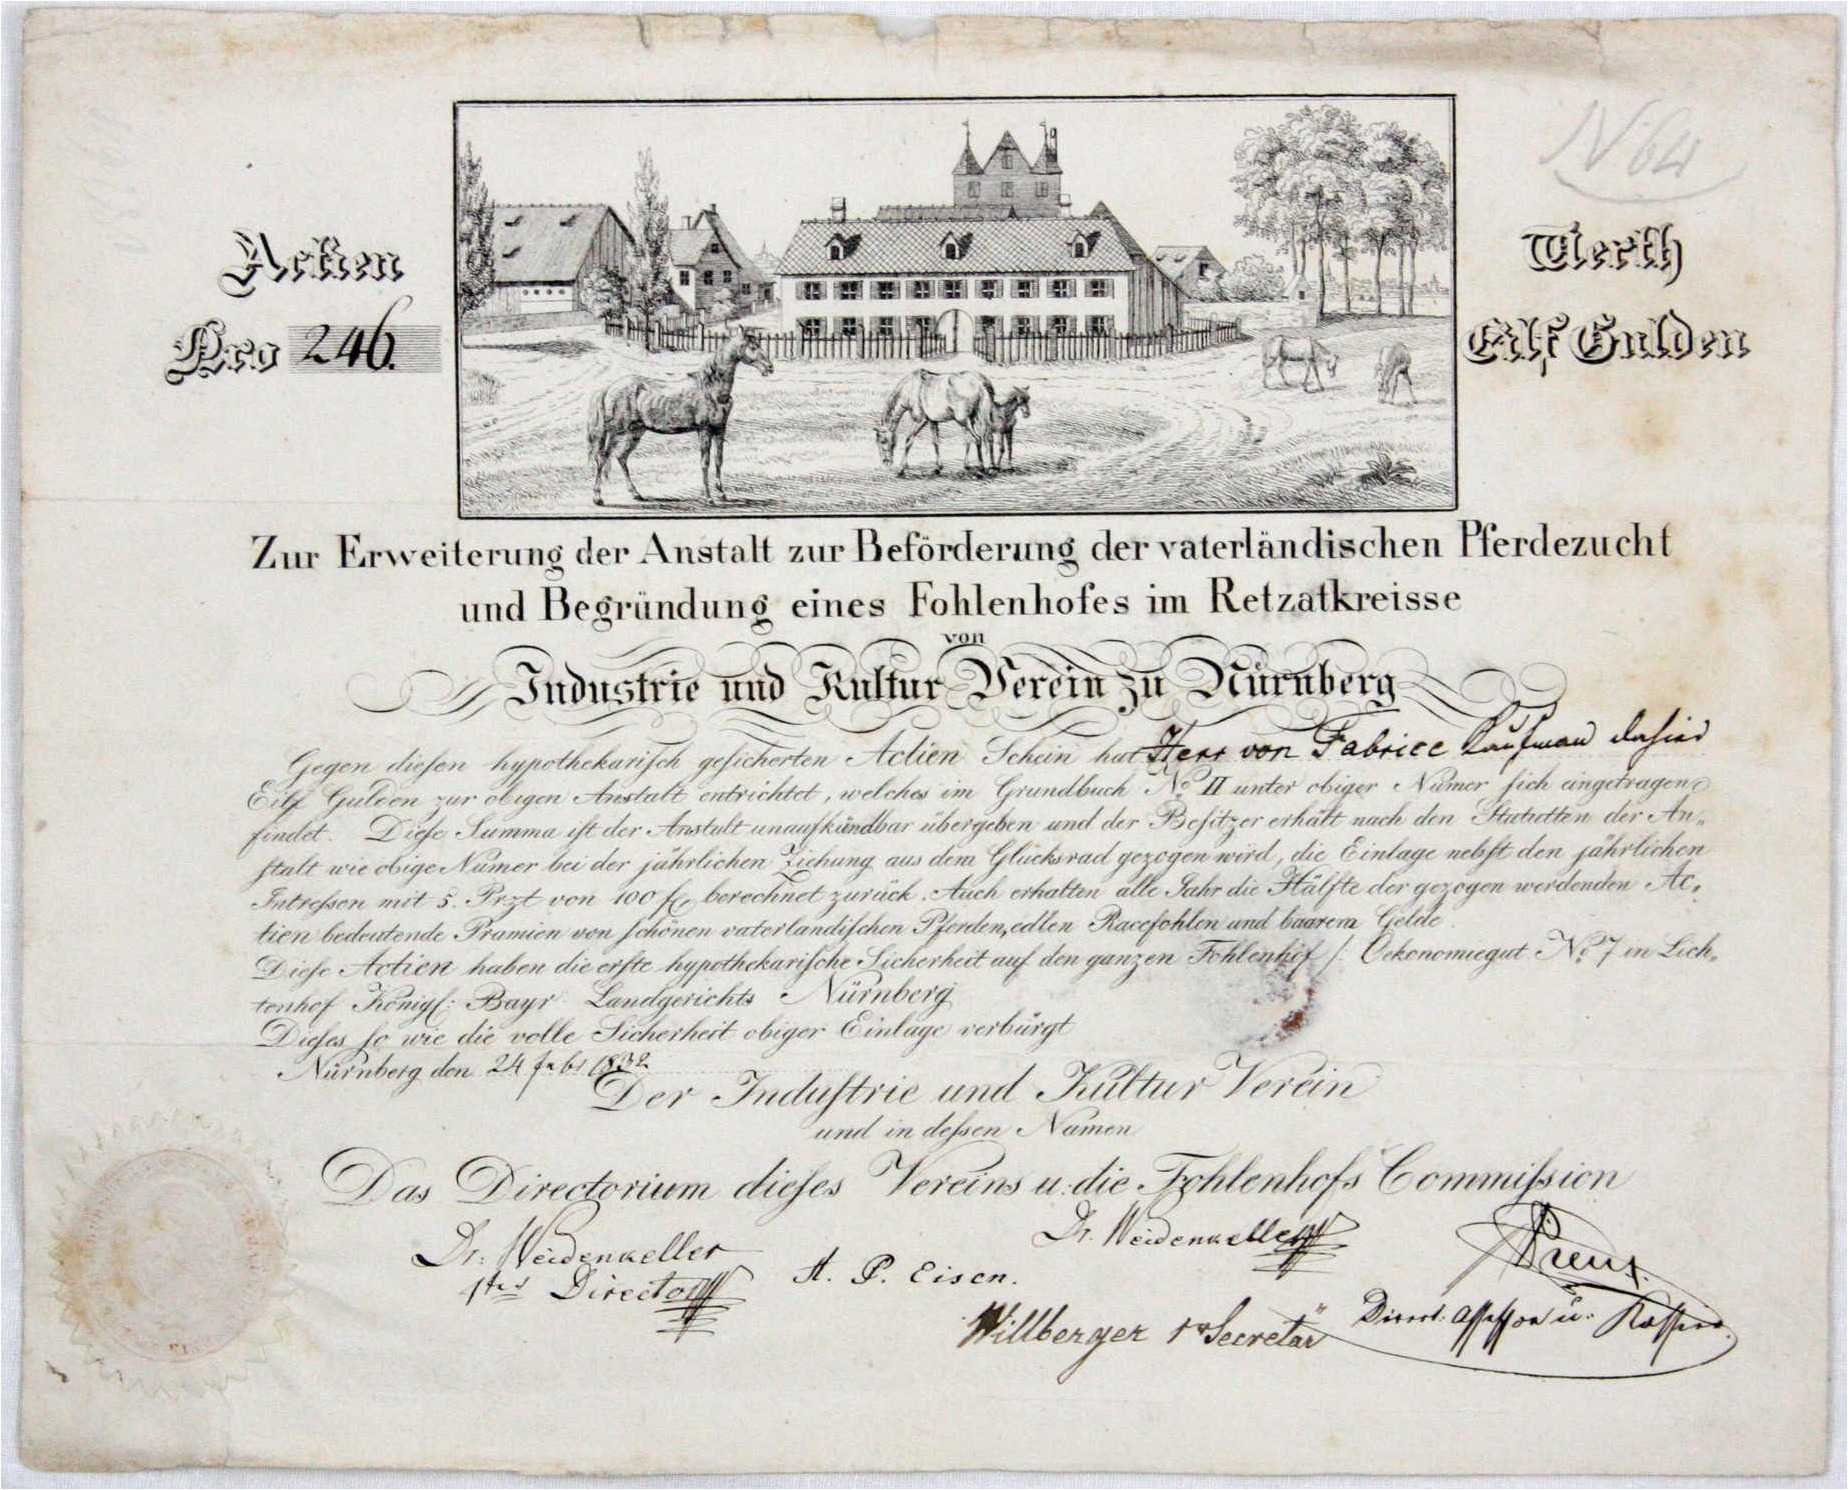 N. 64
Actien
Nro 246.
Werth
Eilf Gulden
Zur Erweiterung der Anstalt zur Beförderung der vaterländischen Pferdezucht
und Begründung eines Fohlenhofes im Retzatkreisse
von
Industrie und Kultur Verein zu Nürnberg
Gegen diesen hypothekarisch gesicherten Actien Schein hat Herr von Fabrice Kaufman dahier
Eilf Gulden zur obigen Anstalt entrichtet, welches im Grundbuch No. II unter obiger Numer sich eingetragen
findet. Diese Summa ist der Anstalt unaufkündbar übergeben und der Besitzer erhält nach den Statutten der An-
stalt wie obige Numer bei der jährlichen Ziehung aus dem Glücksrad gezogen wird, die Einlage nebst den jährlichen
Intressen mit 5. Przt von 100 f. berechnet zurück. Auch erhalten alle Jahr die Hälfte der gezogen werdenden Ac-
tien bedeutende Pramien von schönen vaterlandischen Pferden, edlen Racefohlen und baarem Gelde.
Diese Actien haben die erste hypothekarische Sicherheit auf den ganzen Fohlenhof /: Oekonomiegut No. 7 in Lich-
tenhof Königl: Bayr. Landgerichts Nürnberg
Dieses so wie die volle Sicherheit obiger Einlage verbürgt
Nürnberg den 24 Febr 1832
Der Industrie und Kultur Verein
und in dessen Namen
Das Directorium dieses Vereins u: die Fohlenhofs Commission
Dr. Weidenkeller
1ter Director
A. P. Eisen.
Dr. Weidenkeller
Willberger 1r Secretär
Direct. Assessor u. Kassier